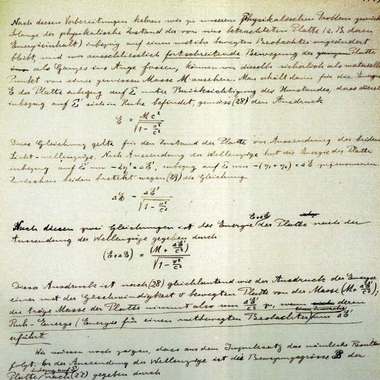 Nach diesen Vorbereitungen kehren wir zu unserem physikalischen Problem zurück.
Solange der physikalische Zustand der von uns betrachteten Platte (z. B. deren
Energieinhalt) inbezug auf einen mit ihr bewegten Beobachter ungeändert
bleibt, und wir ausschliesslich fortschreitende Bewegung der ganzen Platte
als Ganzes ins Auge fassen, können wir dieselbe sicherlich als materiellen
Punkt von einer gewissen Masse M ansehen. Man erhält dann für die Energie
E der Platte inbezug auf Σ unter Berücksichtigung des Umstandes, dass dieselbe
inbezug auf Σ' sich in Ruhe befindet, gemäss (28) den Ausdruck
E = Mc² / √(1 - v²/c²)
Diese Gleichung gilt für den Zustand der Platte vor Aussendung der beiden
Licht-wellenzüge. Nach Aussendung der Wellenzüge hat die Energie der Platte
inbezug auf Σ' um zugenommen.
Zwischen beiden besteht wegen (29) die Gleichung
ΔE = ΔE' / √(1 - v²/c²)
Nach diesen zwei Gleichungen ist die Energie E+ΔE der Platte nach der
Aussendung der Wellenzüge gegeben durch
(E+ΔE) = (M + ΔE'/c²) c² / √(1 - v²/c²)
Dieser Ausdruck ist nach (28) gleichlautend wie der Ausdruck der Energie
einer mit der Geschwindigkeit v bewegten Platte von der Masse (M + ΔE'/c²),
die träge Masse der Platte nimmt also um ΔE'/c² zu, wenn deren
Ruh-Energie (Energie für einen mitbewegten Beobachter) um ΔE'
erfährt
Wir müssen noch zeigen, dass aus dem Impulssatz das nämliche Resultat
folgt. die Bewegungsgrösse B der
Platte nach (27) gegeben durch